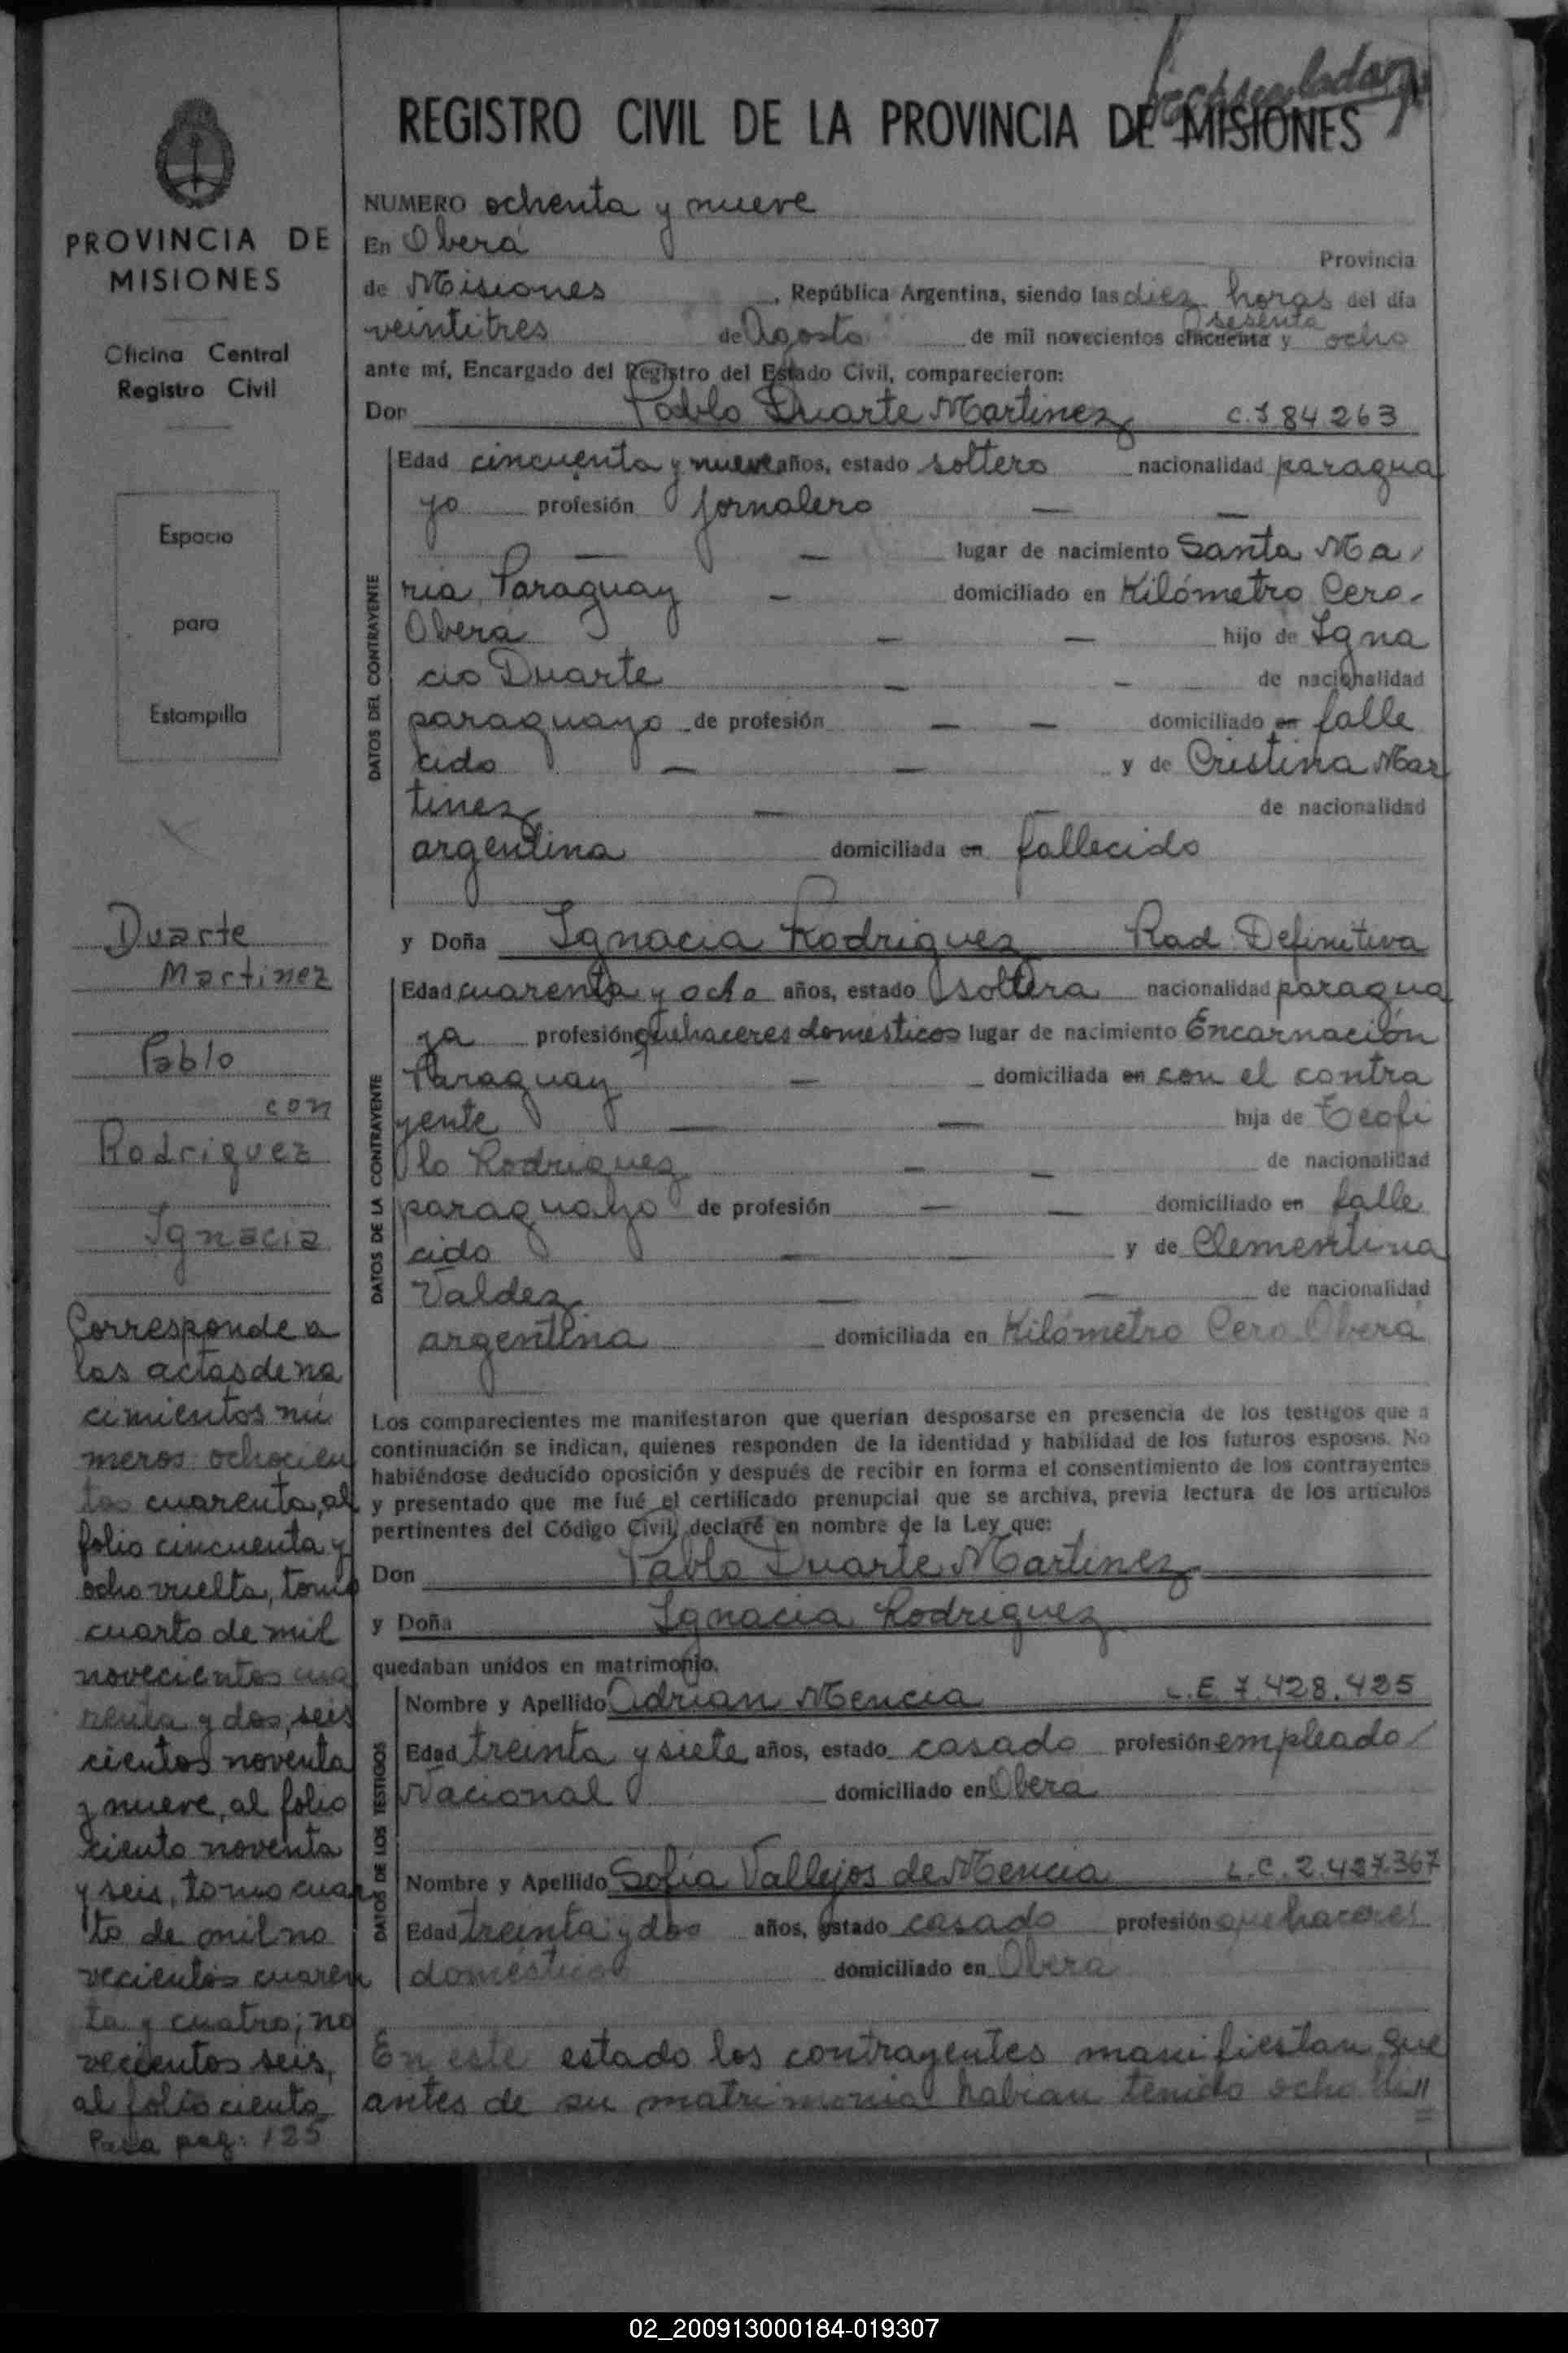 REGISTRO CIVIL DE LA PROVINCIA DE MISIONES
PROVINCIA DE
MISIONES
Oficina Central
Registro Civil
Espacio
para
Estampilla
Duarte
Martinez
Pablo
con
Rodriguez
Ignacia
Corresponde a
las actas de na
cimientos nú
meros ochocien
tos cuarenta, al
folio cincuenta y
ocho vuelta, tomo
cuarto de mil
novecientos cua
renta y dos, seis
cientos noventa
y nueve, al folio
ciento noventa
y seis, tomo cuar
to de mil no
vecientos cuaren
ta y cuatro; no
vecientos seis,
al folio ciento
Pasa pag: 125
NUMERO ochenta y nueve
En Oberá Provincia
de Misiones , República Argentina, siendo las diez horas del día
veintitres de Agosto de mil novecientos cincuenta sesenta y ocho
ante mí, Encargado del Registro del Estado Civil, comparecieron:
Don Pablo Duarte Martinez C.I 84263
DATOS DEL CONTRAYENTE
Edad cincuenta y nueve años, estado soltero nacionalidad paragua
yo profesión jornalero — —
— — lugar de nacimiento Santa Ma
ria, Paraguay — domiciliado en Kilómetro Cero
Oberá — — hijo de Igna
cio Duarte — — de nacionalidad
paraguayo de profesión — — domiciliado en falle
cido — — y de Cristina Mar
tinez — de nacionalidad
argentina domiciliada en fallecido
y Doña Ignacia Rodriguez Rad Definitiva
DATOS DE LA CONTRAYENTE
Edad cuarenta y ocho años, estado soltera nacionalidad paragua
ya profesión quehaceres domésticos lugar de nacimiento Encarnación
Paraguay — domiciliada en con el contra
yente — — hija de Teofi
lo Rodriguez — — de nacionalidad
paraguayo de profesión — — domiciliado en falle
cido — y de Clementina
Valdez — — de nacionalidad
argentina domiciliada en Kilómetro Cero Oberá
Los comparecientes me manifestaron que querían desposarse en presencia de los testigos que a
continuación se indican, quienes responden de la identidad y habilidad de los futuros esposos. No
habiéndose deducido oposición y después de recibir en forma el consentimiento de los contrayentes
y presentado que me fué el certificado prenupcial que se archiva, previa lectura de los artículos
pertinentes del Código Civil, declaré en nombre de la Ley que:
Don Pablo Duarte Martinez
y Doña Ignacia Rodriguez
quedaban unidos en matrimonio.
DATOS DE LOS TESTIGOS
Nombre y Apellido Adrian Mencia L.E 7.428.435
Edad treinta y siete años, estado casado profesión empleado
Nacional domiciliado en Oberá
Nombre y Apellido Sofía Vallejos de Mencia L.C. 2.437.367
Edad treinta y dos años, estado casado profesión quehaceres
domésticos domiciliado en Oberá
En este estado los contrayentes manifiestan que
antes de su matrimonio habian tenido ocho
02_200913000184-019307